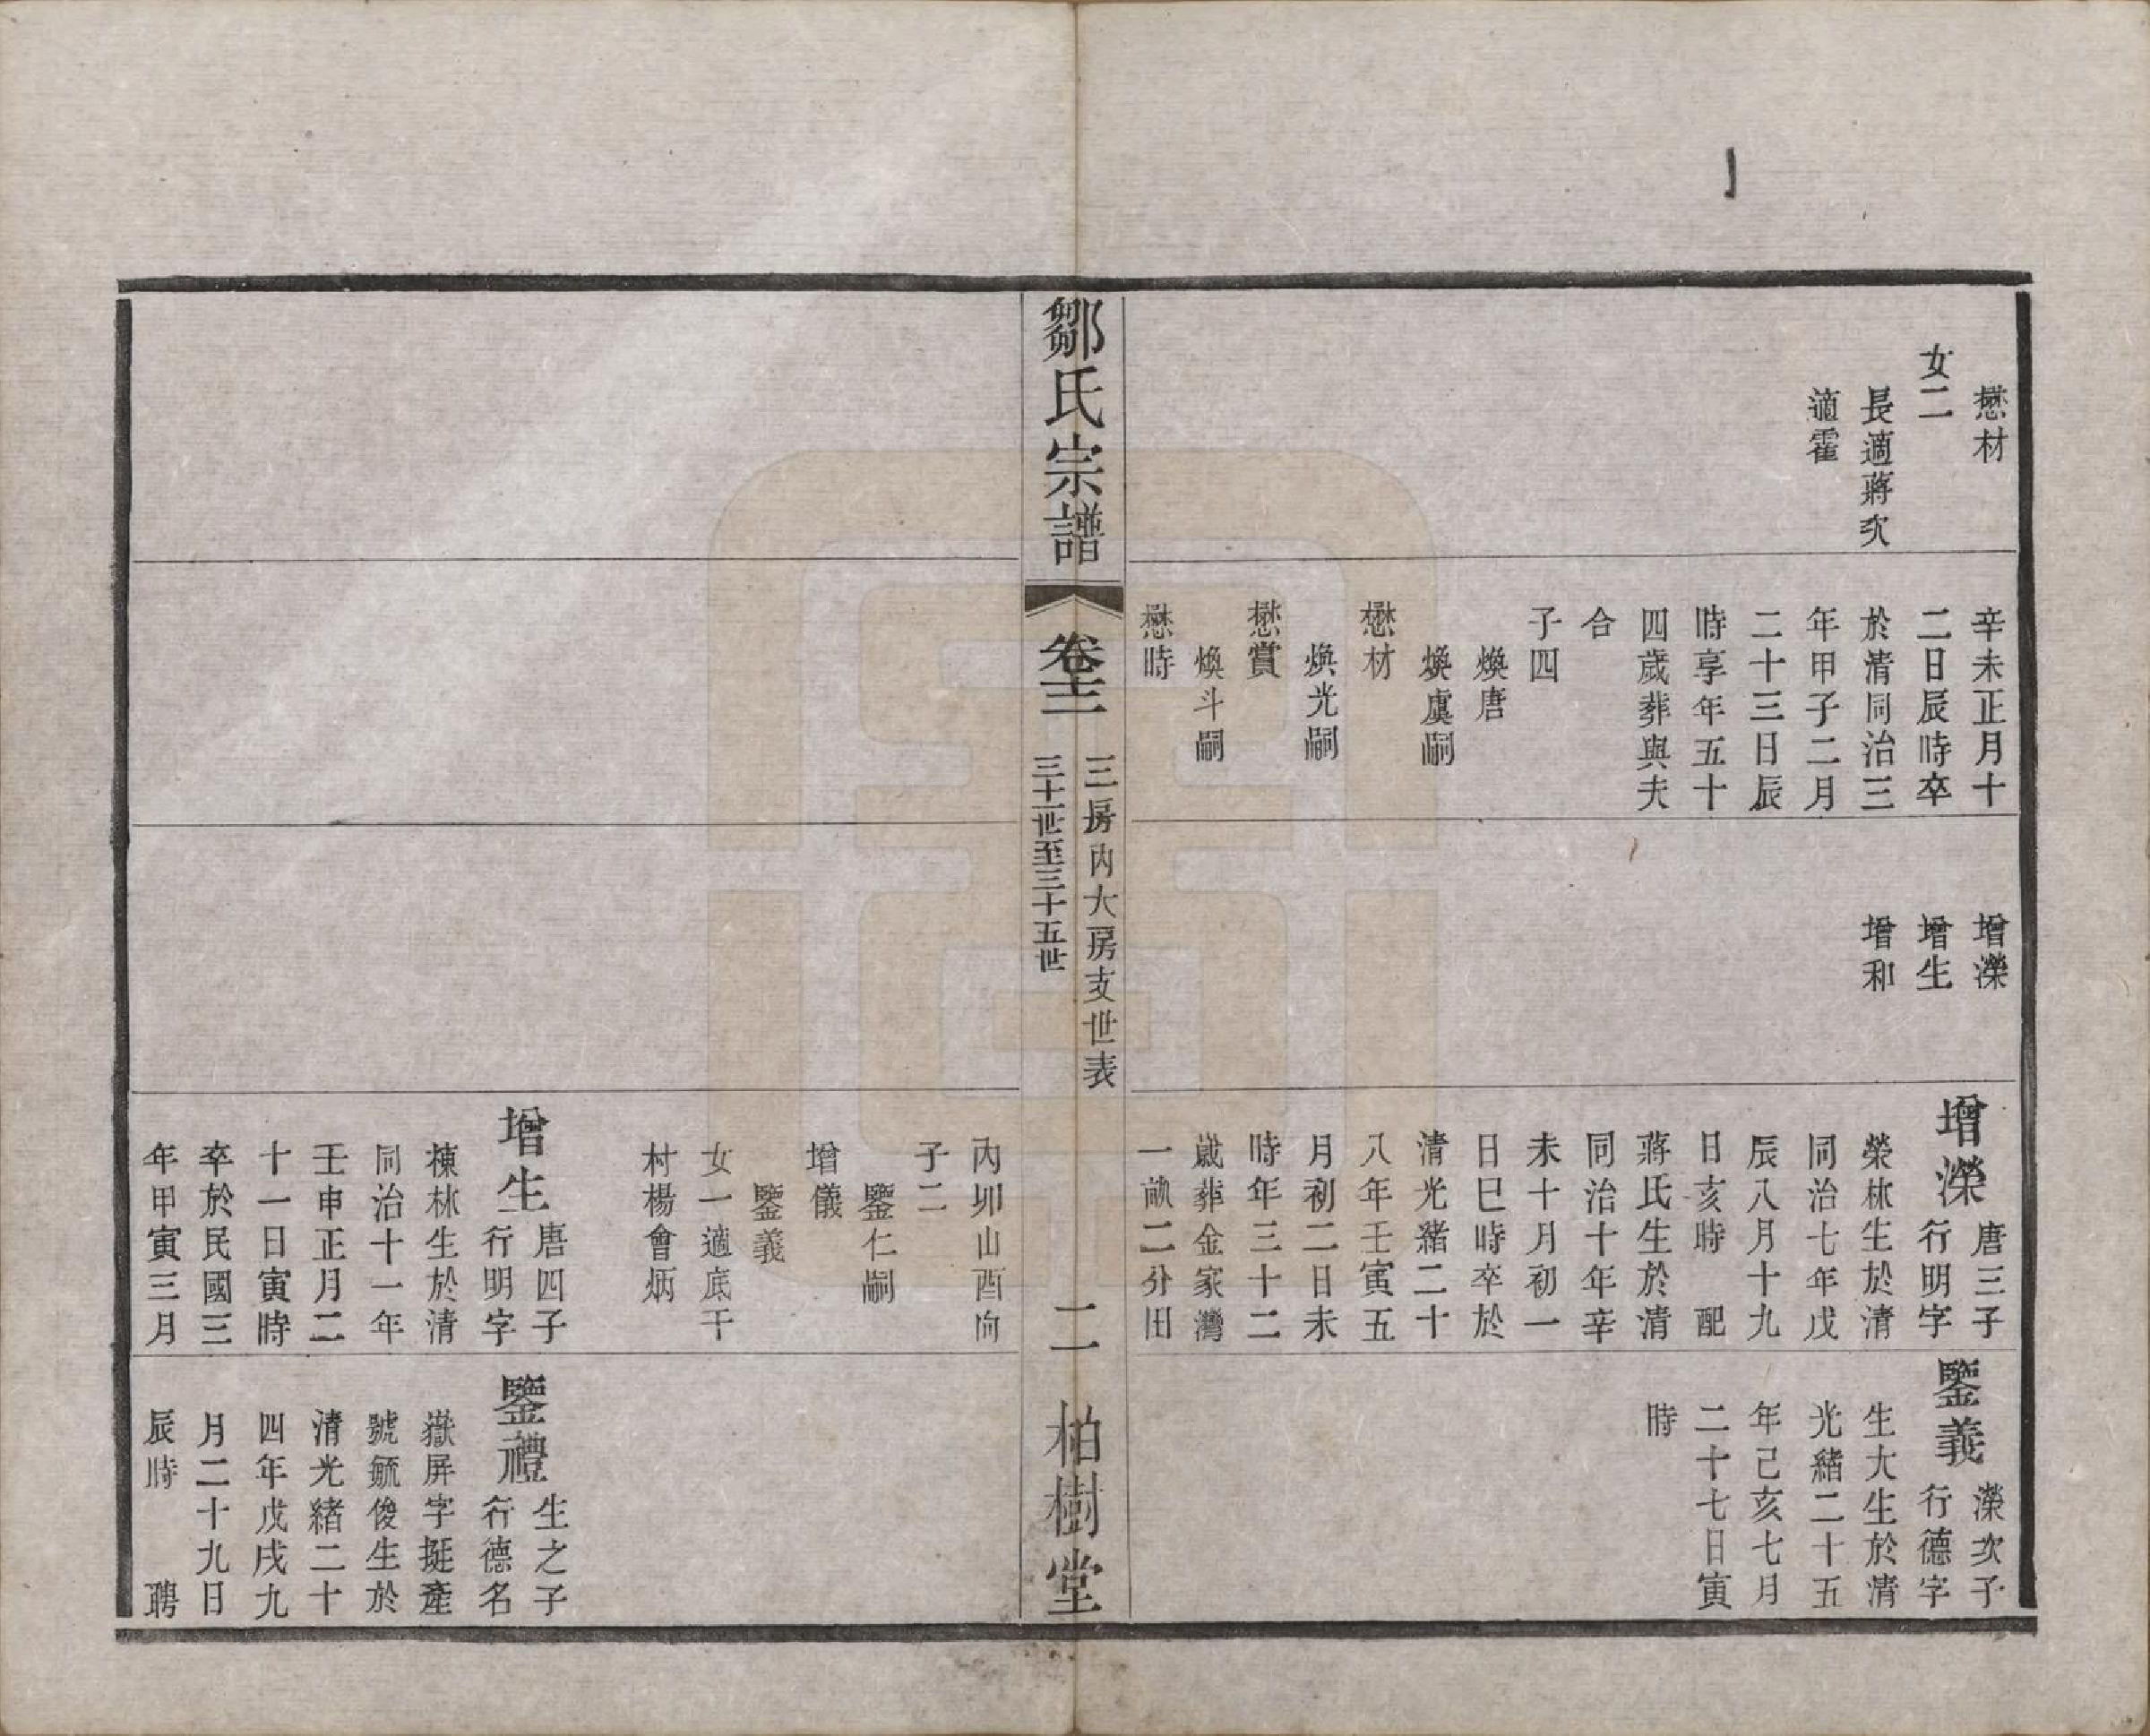 懋材
女二
長適蔣次
適霍
辛未正月十
二日辰時卒
於清同治三
年甲子二月
二十三日辰
時享年五十
四歲葬與夫
合
子四
煥唐
煥虞嗣
懋材
煥光嗣
懋賞
煥斗嗣
懋時
增濚
增生
增和
增濚
唐三子
行明字
榮林生於清
同治七年戊
辰八月十九
日亥時 配
蔣氏生於清
同治十年辛
未十月初一
日巳時卒於
清光緒二十
八年壬寅五
月初二日未
時年三十二
歲葬金家灣
一畝二分田
鑒義
濚次子
行德字
生大生於清
光緒二十五
年己亥七月
二十七日寅
時
鄒氏宗譜
卷十二
三房內大房支世表
三十一世至三十五世
二
柏樹堂
內卯山酉向
子二
鑒仁嗣
增儀
鑒義
女一適底干
村楊會炳
增生
唐四子
行明字
棟林生於清
同治十一年
壬申正月二
十一日寅時
卒於民國三
年甲寅三月
鑒禮
生之子
行德名
嶽屏字挺產
號毓俊生於
清光緒二十
四年戊戌九
月二十九日
辰時 聘